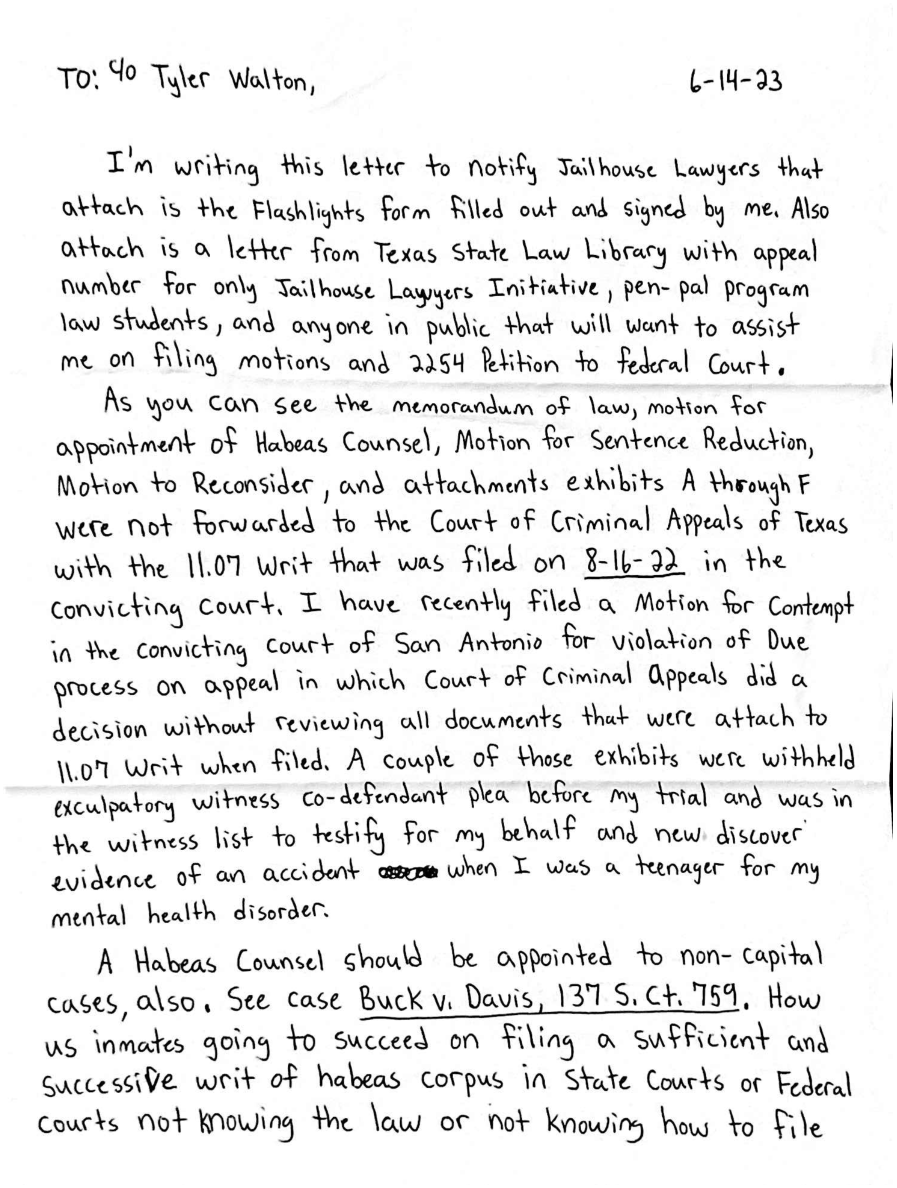 TO: c/o Tyler Walton, 6-14-23
I'm writing this letter to notify Jailhouse Lawyers that
attach is the Flashlights form filled out and signed by me. Also
attach is a letter from Texas State Law Library with appeal
number for only Jailhouse Lawyers Initiative, pen-pal program
law students, and anyone in public that will want to assist
me on filing motions and 2254 Petition to federal Court.
As you can see the memorandum of law, motion for
appointment of Habeas Counsel, Motion for Sentence Reduction,
Motion to Reconsider, and attachments exhibits A through F
were not forwarded to the Court of Criminal Appeals of Texas
with the 11.07 Writ that was filed on 8-16-22 in the
convicting court. I have recently filed a Motion for Contempt
in the convicting court of San Antonio for violation of Due
process on appeal in which Court of Criminal Appeals did a
decision without reviewing all documents that were attach to
11.07 Writ when filed. A couple of those exhibits were withheld
exculpatory witness co-defendant plea before my trial and was in
the witness list to testify for my behalf and new discover
evidence of an accident when I was a teenager for my
mental health disorder.
A Habeas Counsel should be appointed to non-capital
cases, also. See case Buck v. Davis, 137 S. Ct. 759. How
us inmates going to succeed on filing a sufficient and
successive writ of habeas corpus in State Courts or Federal
courts not knowing the law or not knowing how to file